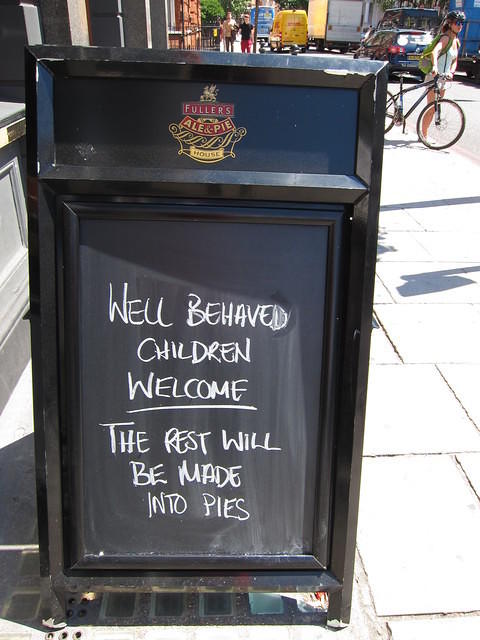 FULLER'S
ALE & PIE
HOUSE
WELL BEHAVED
CHILDREN
WELCOME
THE REST WILL
BE MADE
INTO PIES